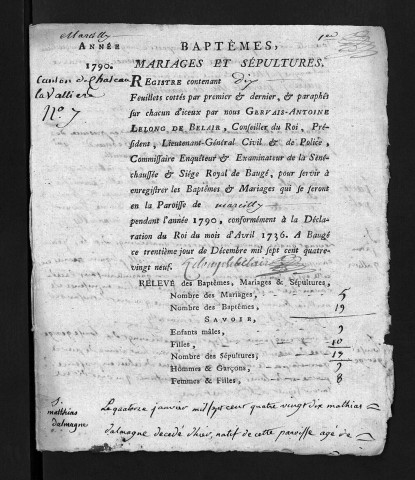 Marcilly
ANNÉE
1790.
canton de chateau
la valliere
N° 7
1er
BAPTÊMES,
MARIAGES ET SÉPULTURES.
REGISTRE contenant dix
Feuillets cottés par premier & dernier, & paraphés
sur chacun d'iceux par nous GERVAIS-ANTOINE
LELONG DE BELAIR, Conseiller du Roi, Pré-
sident, Lieutenant-Général Civil & de Police,
Commissaire Enquêteur & Examinateur de la Séné-
chaussée & Siége Royal de Baugé, pour servir à
enregistrer les Baptêmes & Mariages qui se feront
en la Paroisse de marcilly
pendant l'année 1790, conformément à la Décla-
ration du Roi du mois d'Avril 1736. A Baugé
ce trentième jour de Décembre mil sept cent quatre-
vingt neuf. Lelong de belair
RELEVÉ des Baptêmes, Mariages & Sépultures,
Nombre des Mariages, 5
Nombre des Baptêmes, 19
SAVOIR,
Enfants mâles, 9
Filles, 10
Nombre des Sépultures, 17
Hommes & Garçons, 9
Femmes & Filles, 8
S.
matthias
dalmagne
Le quatorze janvier mil sept cent quatre vingt dix mathias
dalmagne decedé d'hier, natif de cette paroisse agé de